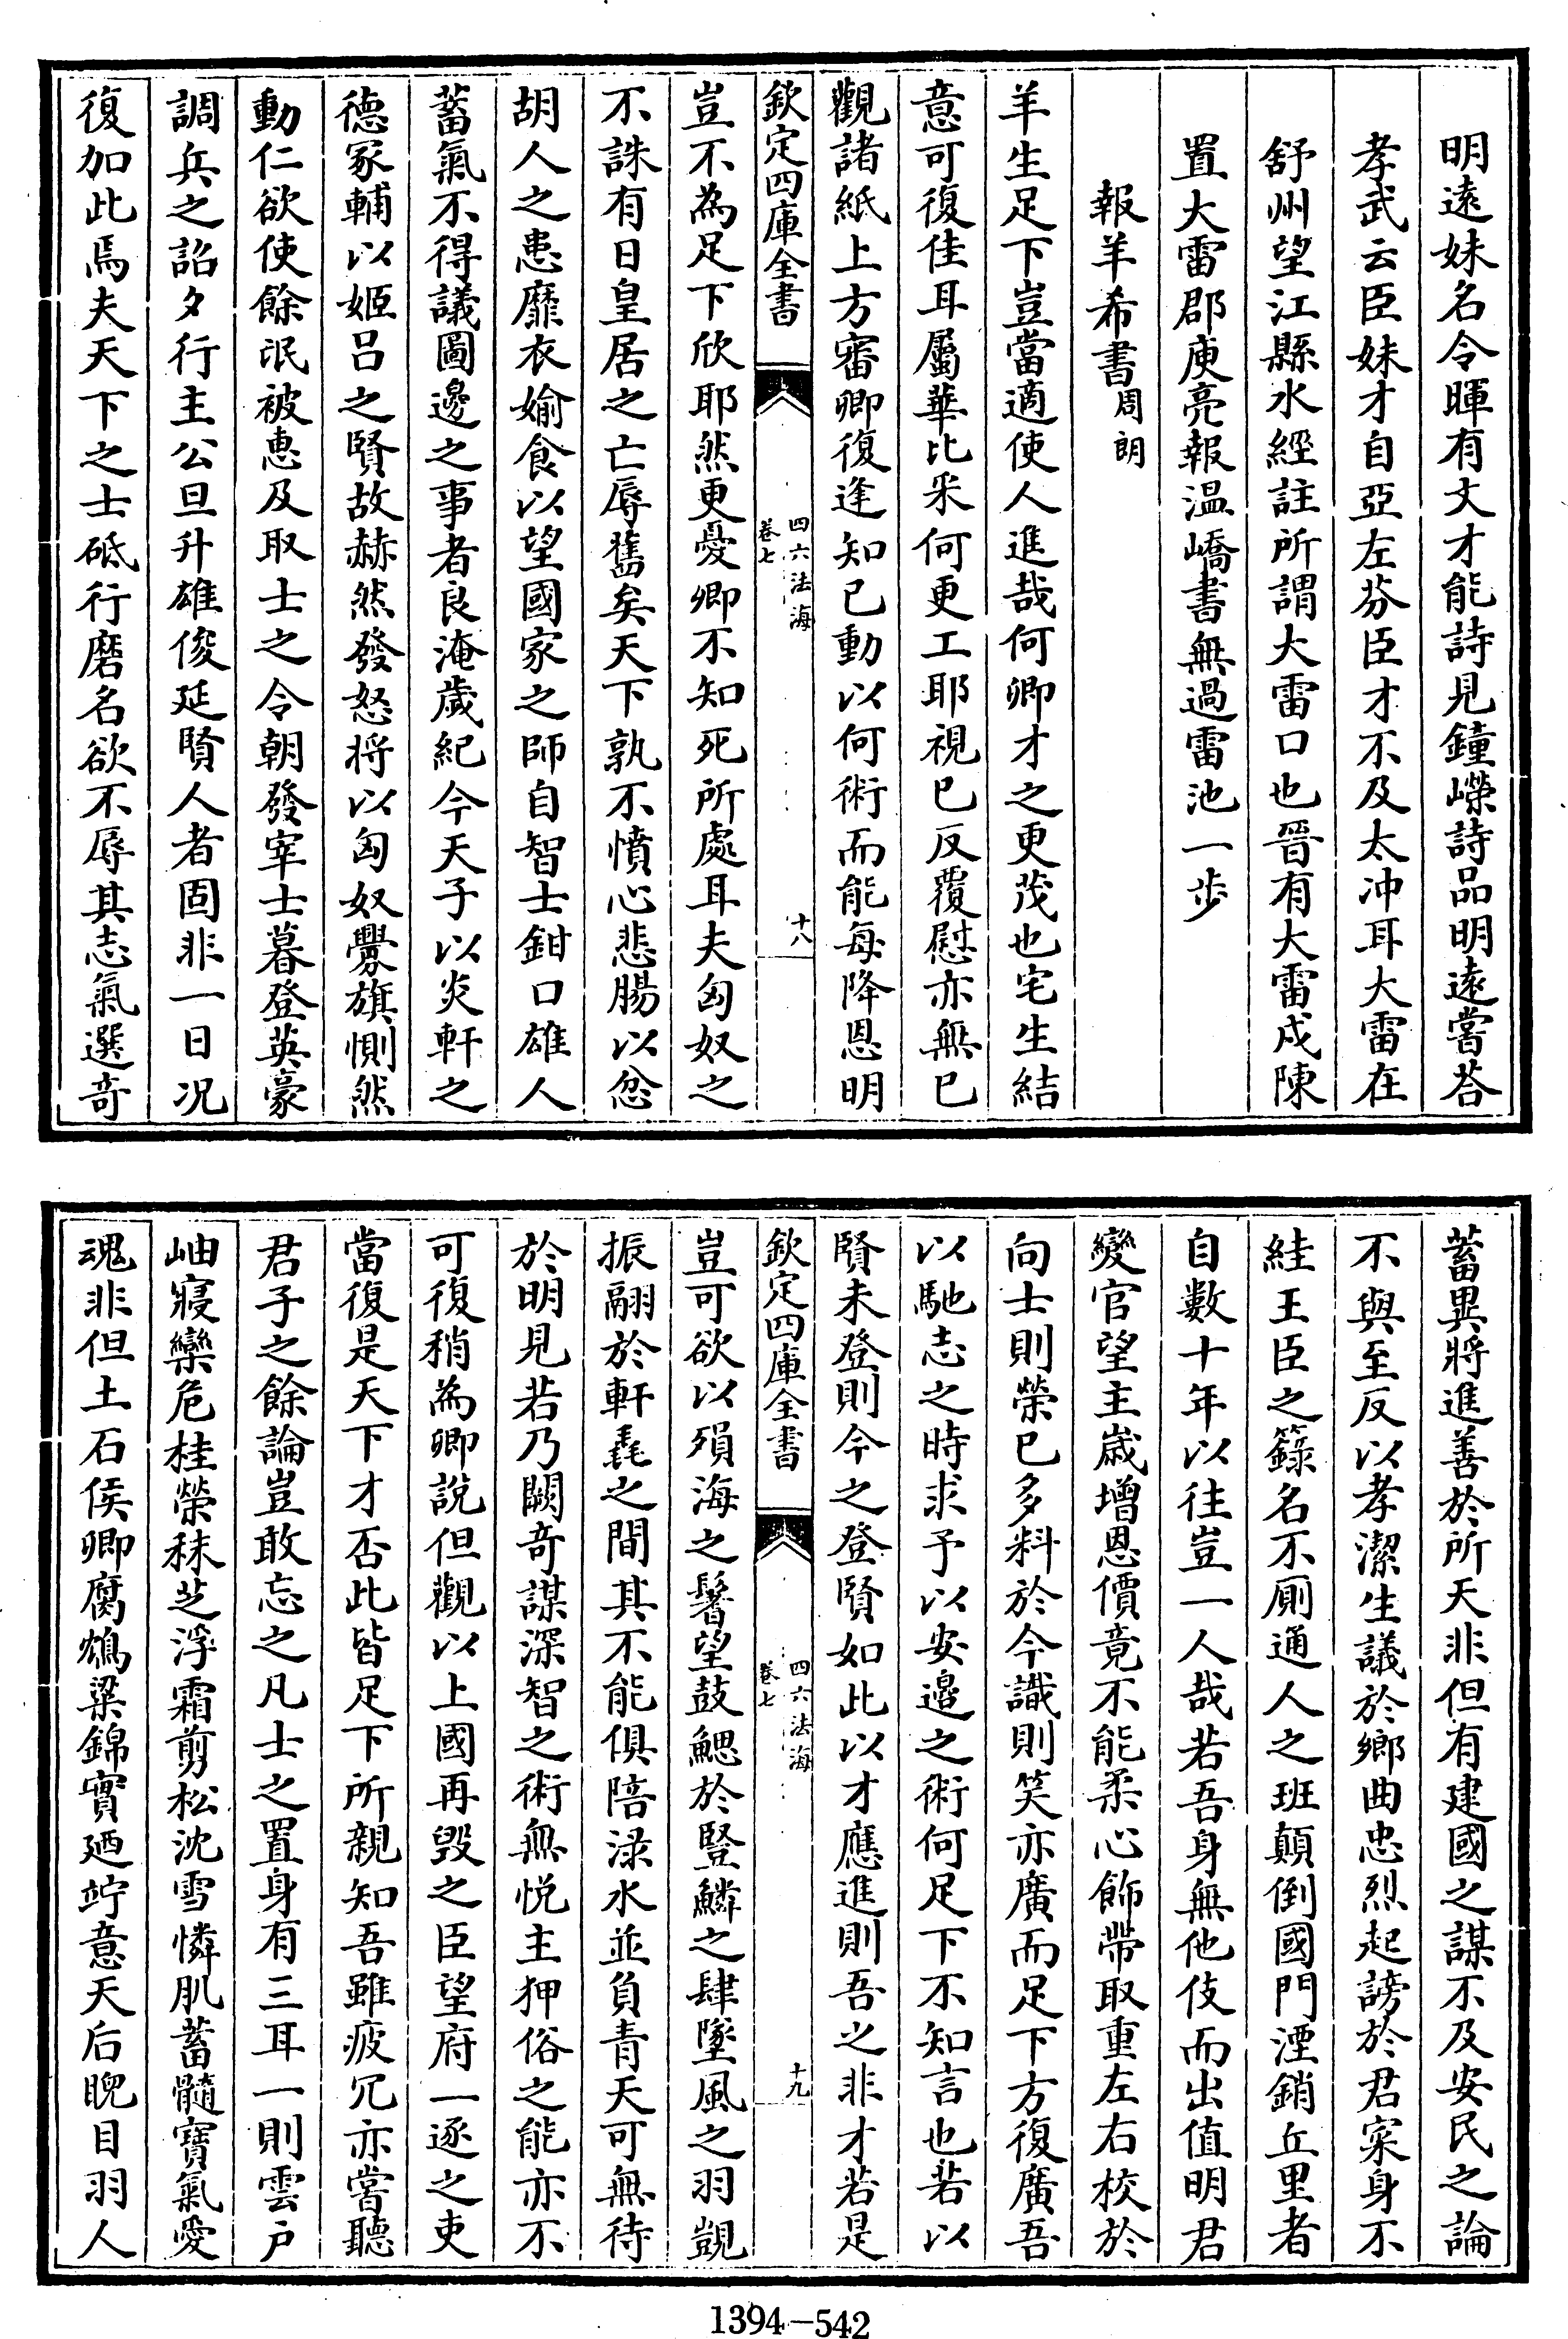 明遠妹名令暉有文才能詩見鐘嶸詩品明遠嘗荅
孝武云臣妹才自亞左芬臣才不及太冲耳大雷在
舒州望江縣水經註所謂大雷口也晉有大雷戍陳
置大雷郡庾亮報温嶠書無過雷池一步
報羊希書周朗
羊生足下豈當適使人進哉何卿才之更茂也宅生結
意可復佳耳屬華比釆何更工耶視已反覆慰亦無已
觀諸紙上方審卿復逢知已動以何術而能每降恩明
欽定四庫全書
四六法海
卷七
十八
豈不為足下欣耶然更憂卿不知死所處耳夫匈奴之
不誅有日皇居之亡辱舊矣天下孰不憤心悲腸以忿
胡人之患靡衣婾食以望國家之師自智士鉗口雄人
蓄氣不得議圖邊之事者良淹歲紀今天子以炎軒之
德冢輔以姬吕之賢故赫然發怒将以匈奴釁旗惻然
動仁欲使餘氓被惠及取士之令朝發宰士暮登英豪
調兵之詔夕行主公旦升雄俊延賢人者固非一日况
復加此焉夫天下之士砥行磨名欲不辱其志氣選奇
蓄異將進善於所天非但有建國之謀不及安民之論
不與至反以孝潔生議於鄉曲忠烈起謗於君寀身不
絓王臣之籙名不廁通人之班顛倒國門湮銷丘里者
自數十年以往豈一人哉若吾身無他伎而出值明君
變官望主嵗增恩價竟不能柔心飾帶取重左右校於
向士則榮已多料於今識則笑亦廣而足下方復廣吾
以馳志之時求予以安邊之術何足下不知言也若以
賢未登則今之登賢如此以才應進則吾之非才若是
欽定四庫全書
四六法海
卷七
十九
豈可欲以殞海之鬐望鼓鰓於豎鱗之肆墜風之羽覬
振翮於軒毳之間其不能俱陪渌水並負青天可無待
於明見若乃闕奇謀深智之術無悦主狎俗之能亦不
可復稍為卿說但觀以上國再毁之臣望府一逐之吏
當復是天下才否此皆足下所親知吾雖疲冗亦嘗聽
君子之餘論豈敢忘之凡士之置身有三耳一則雲户
岫寢欒危桂榮秣芝浮霜剪松沈雪憐肌蓄髓寳氣愛
魂非但土石侯卿腐鴆梁錦實廼竚意天后睨目羽人
1394-542